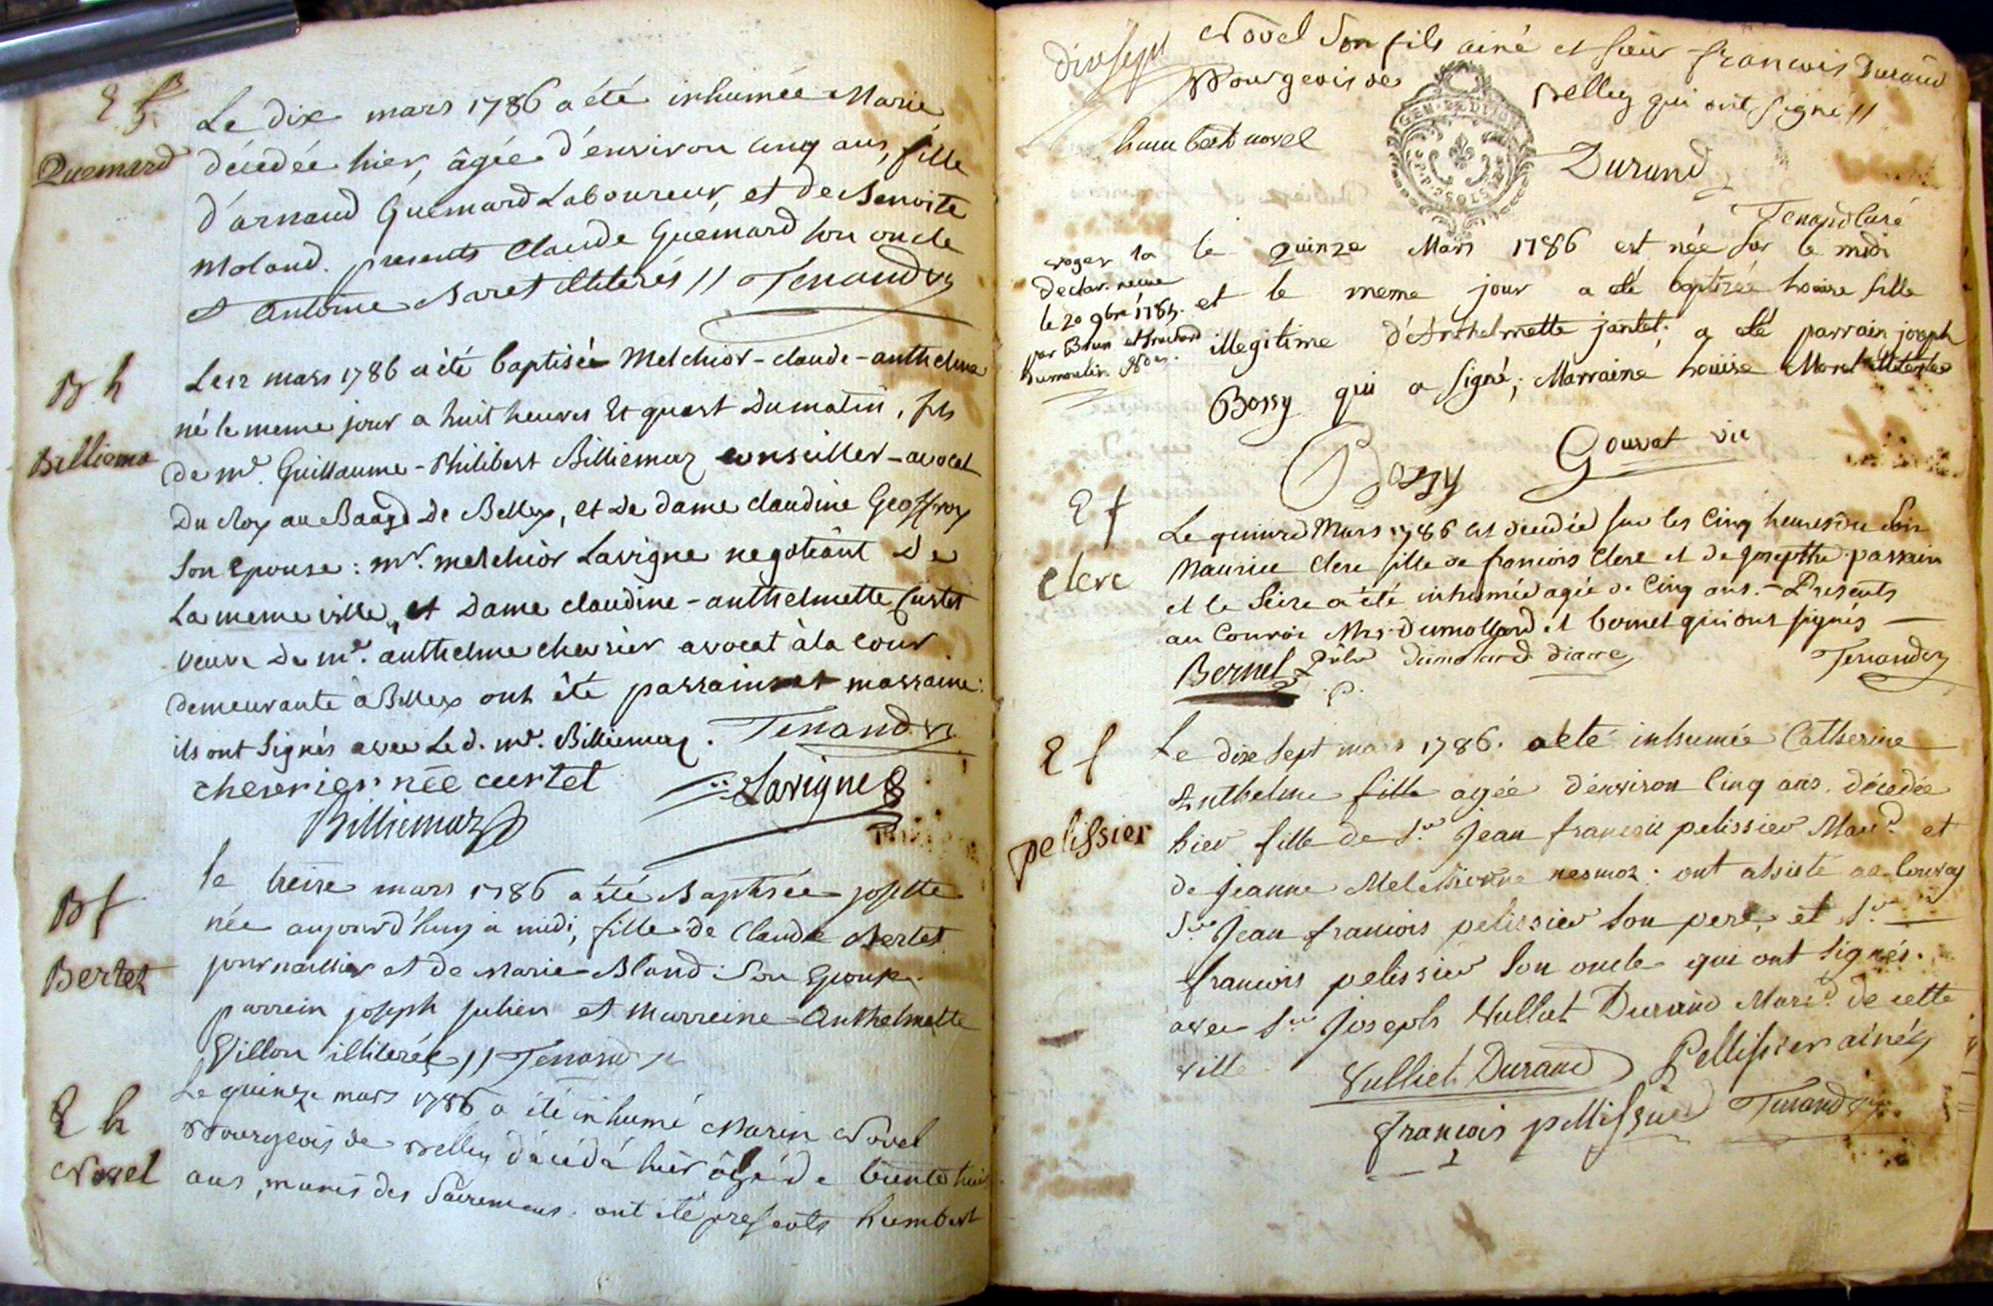 E f
Quemard
Le dix mars 1786 a été inhumée Marie
décédée hier, âgée d'environ cinq ans, fille
d'arnaud Guemard Laboureur, et de Benoite
Moland. presents Claude Guemard son oncle
et Antoine Baret illiterés // Tenand vy
B h
Billiema
Le 12 mars 1786 a été baptisée Melchior-claude-anthelme
né le meme jour a huit heures et quart du matin, fils
de me. Guillaume-Philibert Billiemaz conseiller-avocat
Du Roy au Baage de Belley, et de dame claudine Geoffroy
son epouse: mr. melchior Lavigne negotiant de
La meme ville, et Dame claudine-anthelmette Curtet
veuve de me. anthelme chevrier avocat à la cour
demeurante à Belley ont été parrain et marraine:
ils ont signés avec Le d. me. Billiemaz. Tenand vy
chevrier née curtet
Lavigne
Billiemaz
B f
Bertet
le treize mars 1786 a été Baptisée josette
née aujourd'huy à midi, fille de Claude Bertet
journaillier et de Marie Bland son epouse
parrein joseph julien et marreine Anthelmette
Villon illiterés // Tenand
E h
Novel
Le quinze mars 1786 a été inhumé Marin Novel
Bourgeois de Belley décédé hier âgé de trente huit
ans, munis des Sacremens. ont été presents humbert
dix sept
Novel son fils ainé et sieur francois Durand
Bourgeois de Belley qui ont signé //
humbert novel
GEN. DE DIJON
Durand
Tenand Curé
le quinze Mars 1786 est née sur le midi
et le meme jour a été baptisée louise fille
illegitime d'Anthelmette jantet; a été parrain joseph
Bossy qui a signé; Marraine louise Morel illiterée
voyez la
declar. recue
le 20 9bre 1785.
par Brun et
Dumoulin Nores.
Bossy
Gouvat vic
E f
Clerc
Le quinze Mars 1786 est decedée sur les Cinq heures du Soir
Maurice Clerc fille de francois Clerc et de Josepthe parrain
et le Seize a été inhumée agée de Cinq ans. Presents
au Convoi Mrs. Dumollard et bornet qui ont signés
Bernel Pbre dumolard diacre
Tenand vy
E f
pelissier
Le dix sept mars 1786. a été inhumée Catherine
Anthelme fille agée d'environ Cinq ans. décedée
hier fille de Sr. Jean francois pelissier Mard. et
de jeanne Melchionne nesmoz: ont assisté au Convoy
Sr. Jean francois pelissier son pere, et Sr.
francois pelissier son oncle qui ont signés.
avec Sr. Joseph Vulliet Durand Mard. de cette
ville
Vulliet Durand
Pellissier ainé
francois pellissier
Tenand